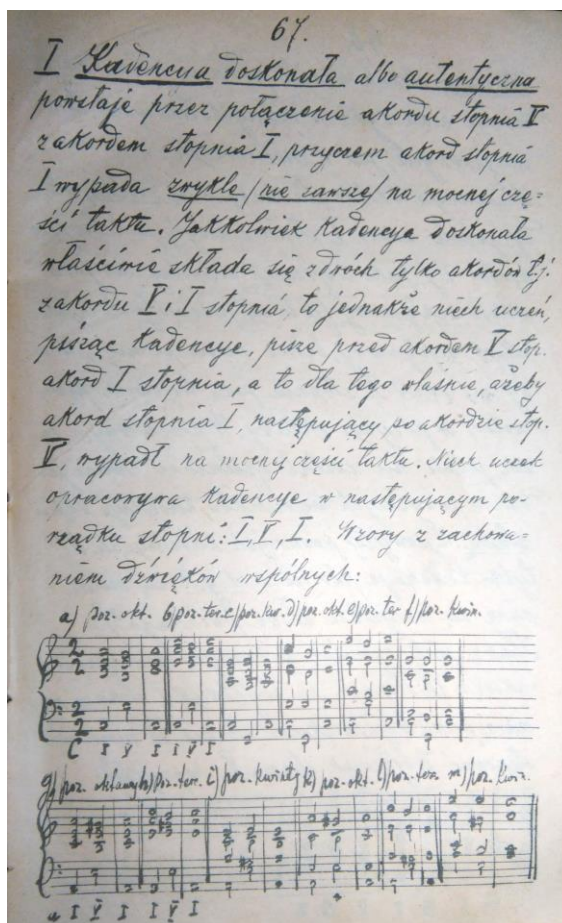 67.
I Kadencya doskonała albo autentyczna
powstaje przez połączenie akordu stopnia V
z akordem stopnia I, przyczem akord stopnia
I wypada zwykle (nie zawsze) na mocnej czę-
ści taktu. Jakkolwiek Kadencye doskonała
właściwie składa się z dwóch tylko akordów t.j.
z akordu V i I stopnia, to jednakże niech uczeń,
pisząc Kadencye, pisze przed akordem V stop.
akord I stopnia, a to dla tego właśnie, ażeby
akord stopnia I, następujący po akordzie stop.
V, wypadł na mocnej części taktu. Niech uczeń
opracowywa Kadencye w następującym po-
rządku stopni: I, V, I. Wzory z zachowa-
niem dźwięków wspólnych:
a) poz. okt. b) poz. ter. c) poz. kw. d) poz. okt. e) poz. ter f) poz. kwin.
2 2
2 2
C I V I I V I
g) poz. oktawy h) poz. ter. i) poz. kwinty k) poz. okt. l) poz. ter. m) poz. kwin.
a I V I I V I